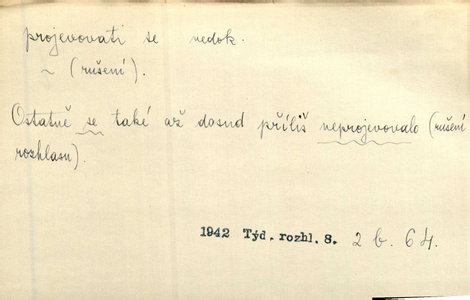 projevovati se nedok.
~ (rušení).
Ostatně se také až dosud příliš neprojevovalo (rušení
rozhlasu).
1942 Týd. rozhl. 8. 2 b. 64.